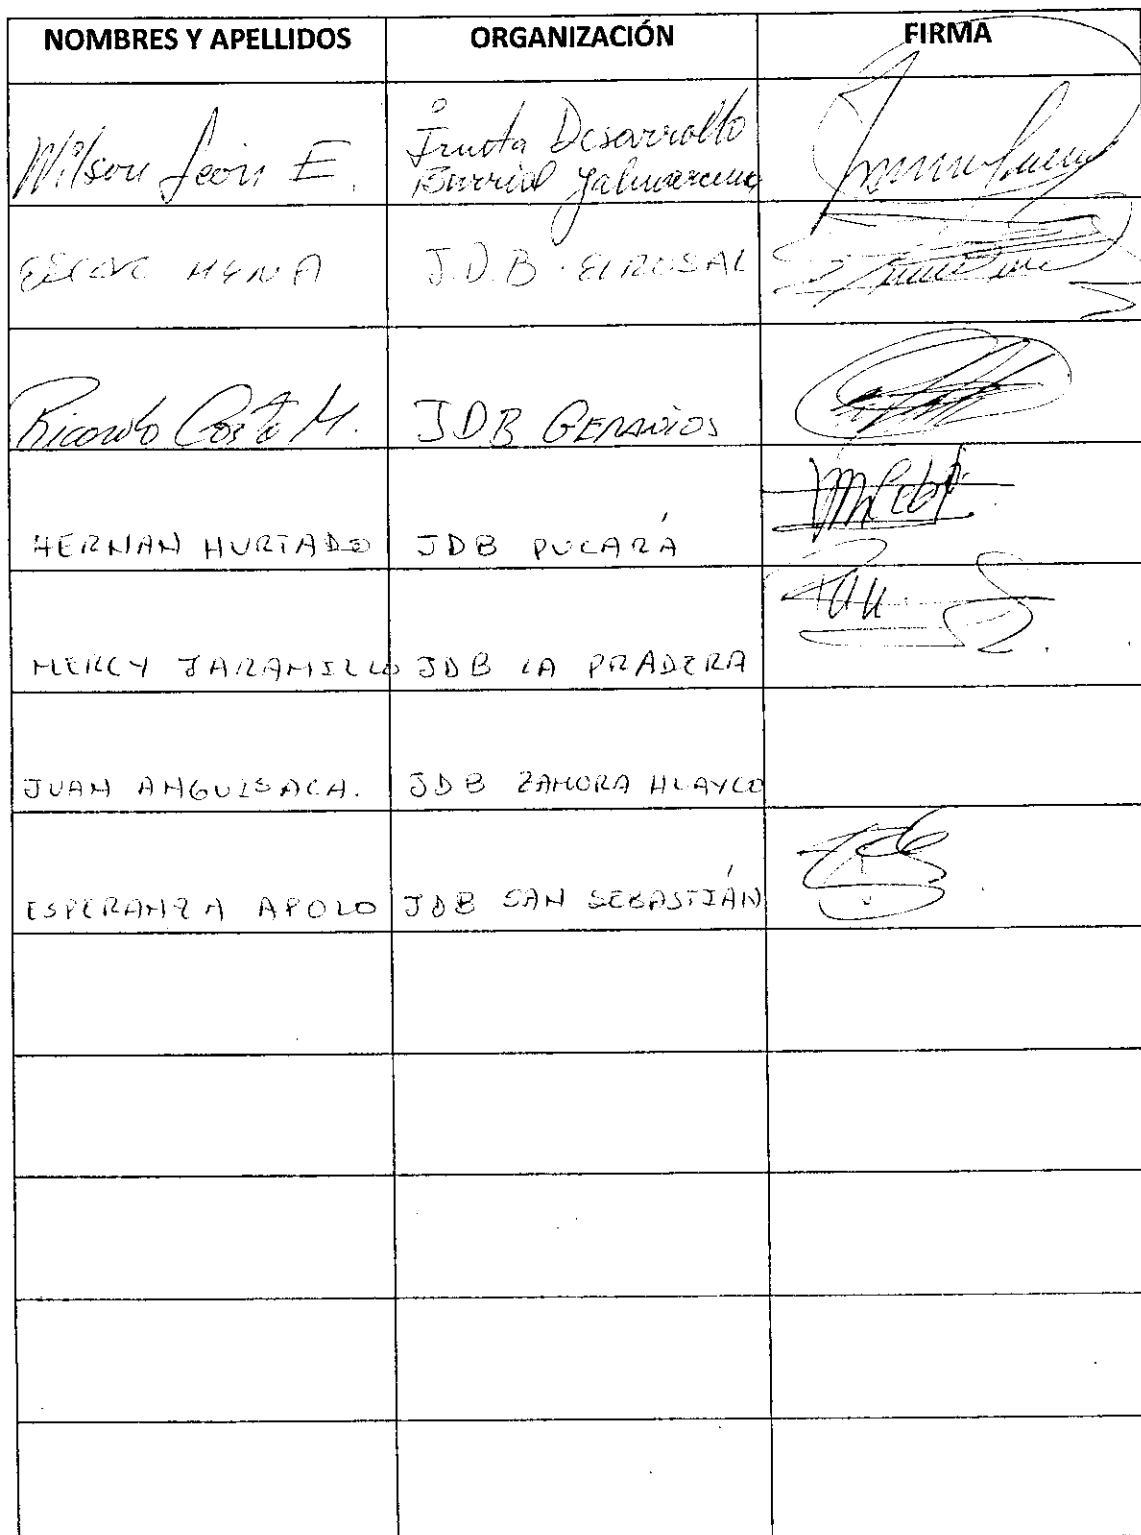 NOMBRES Y APELLIDOS ORGANIZACIÓN FIRMA
Wilson León E. Junta Desarrollo
Barrial
MENA J.D.B. EL ROSAL
Ricardo M. JDB GERANIOS
HERNAN HURTADO JDB PUCARÁ
MERCY JARAMILLO JDB LA PRADERA
JUAN ANGUISACA. JDB ZAMORA HUAYCO
ESPERANZA APOLO JDB SAN SEBASTIÁN